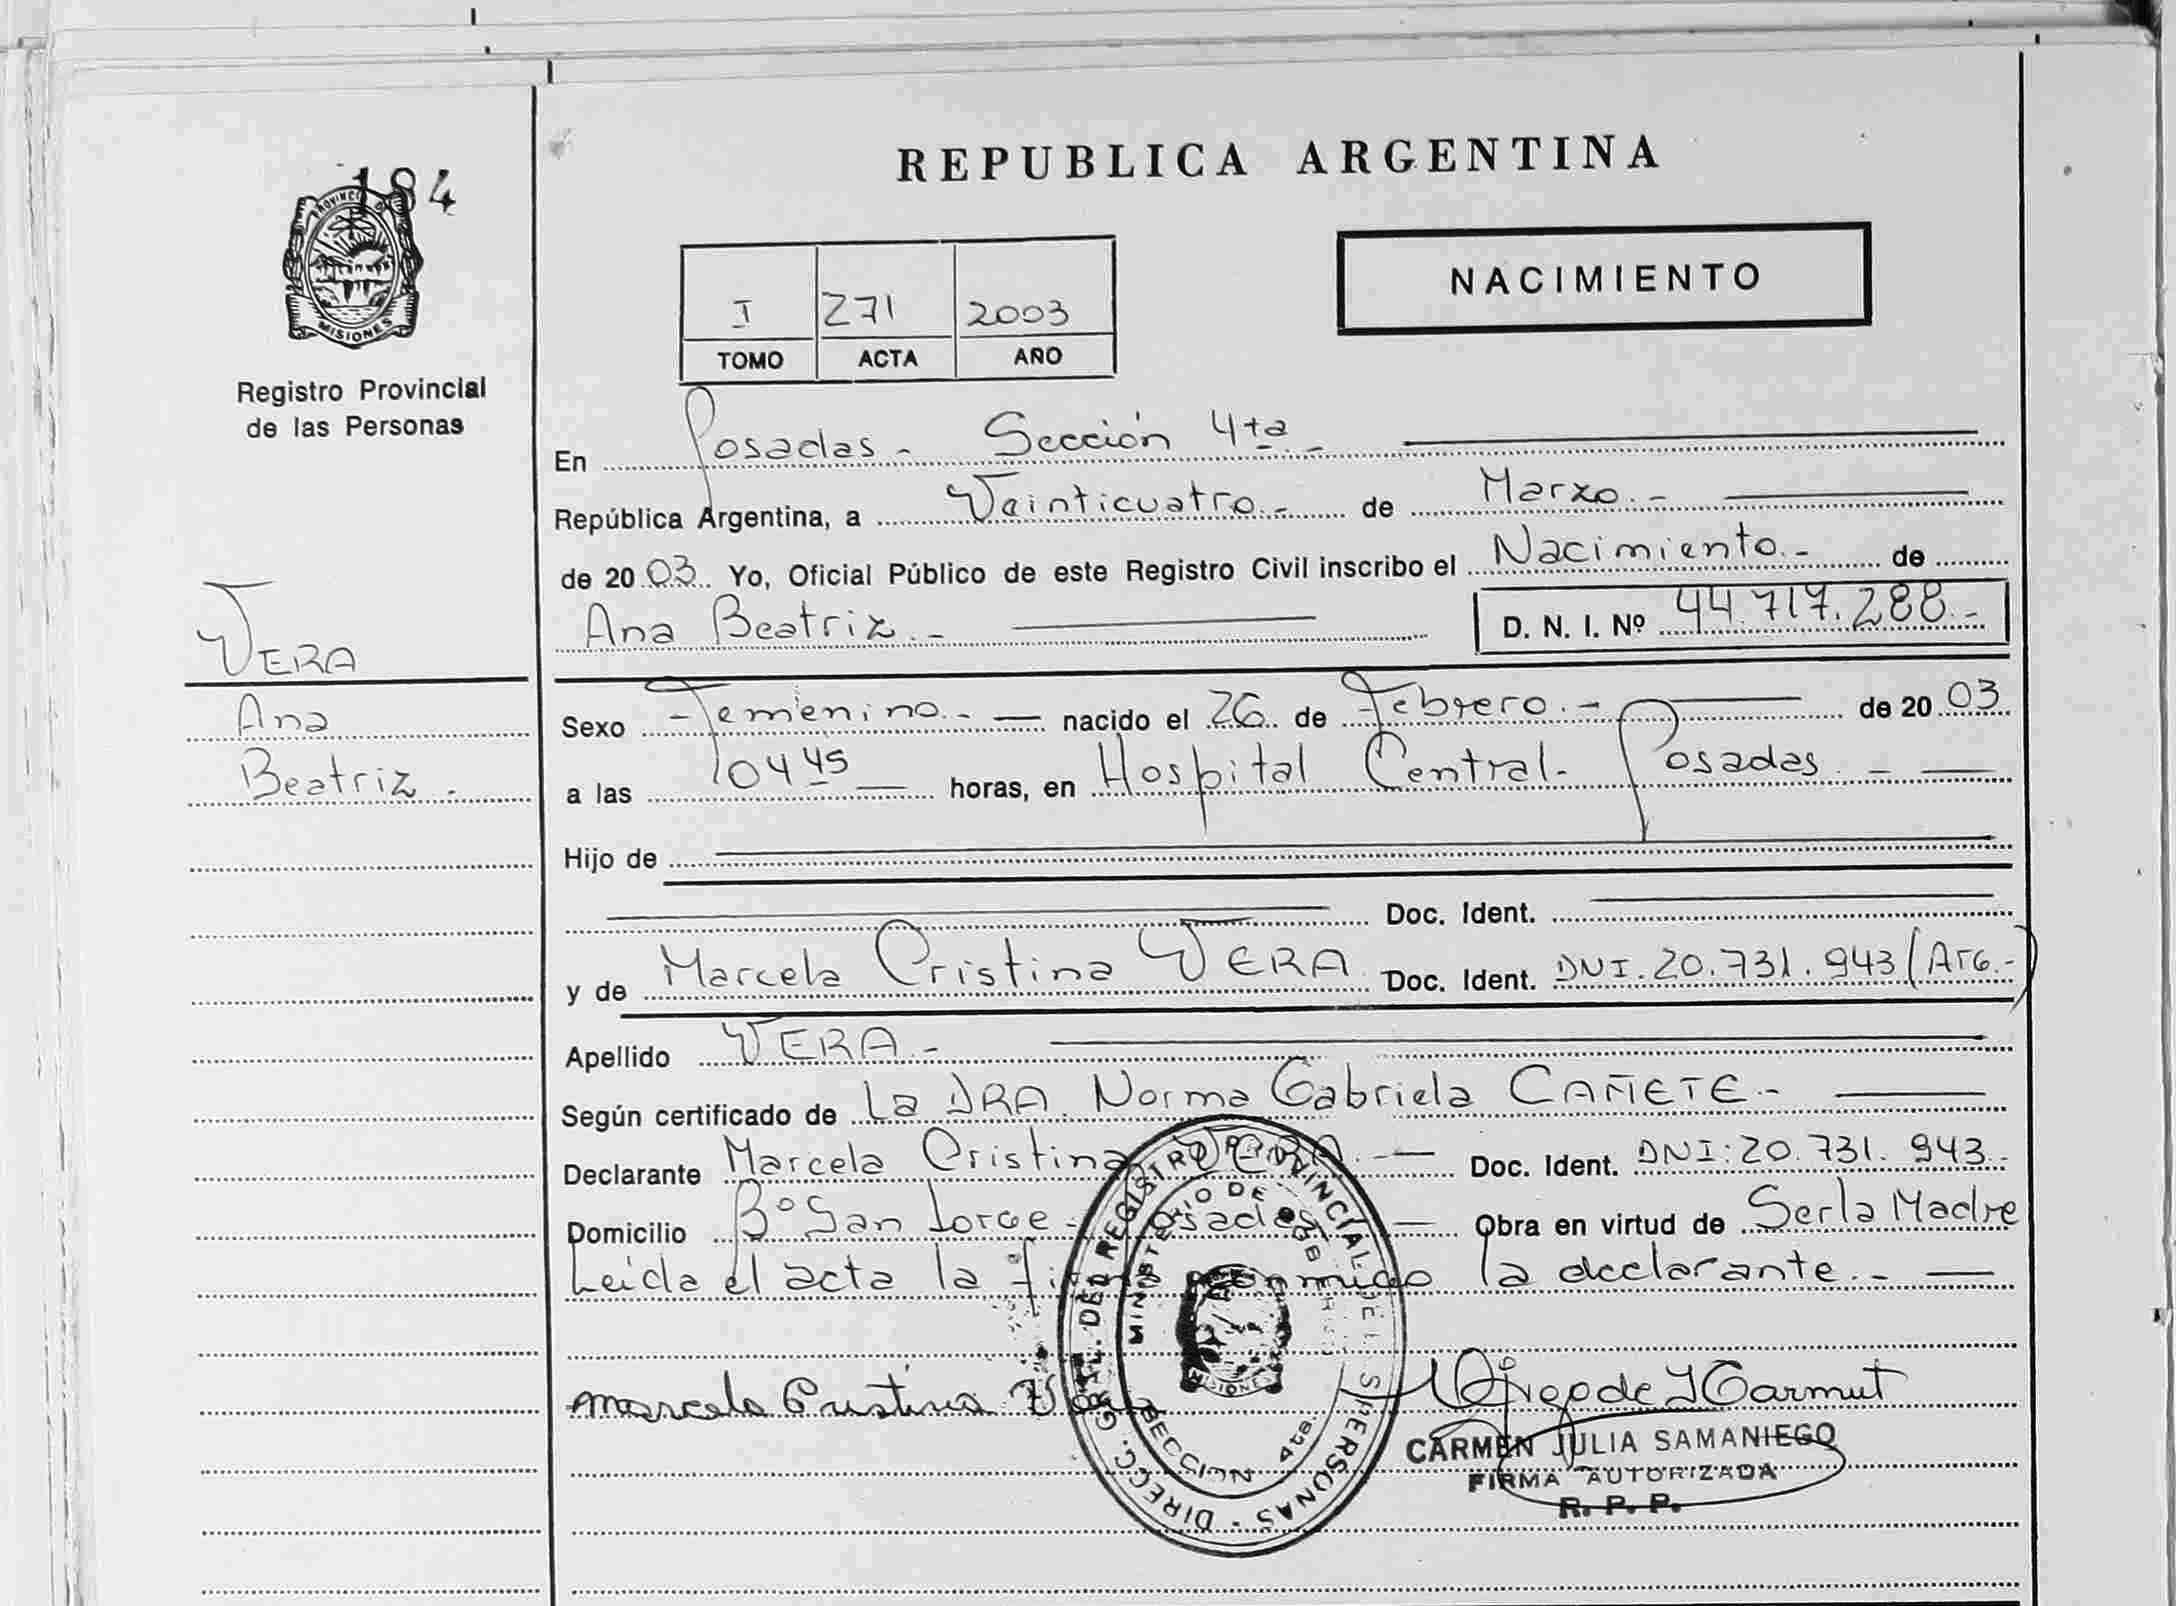 184
PROVINCIA DE
MISIONES
Registro Provincial
de las Personas
VERA
Ana
Beatriz.-
REPUBLICA ARGENTINA
NACIMIENTO
I 271 2003
TOMO ACTA AÑO
En Posadas.- Sección 4ta.-
República Argentina, a Veinticuatro.- de Marzo.-
de 2003 Yo, Oficial Público de este Registro Civil inscribo el Nacimiento.- de
Ana Beatriz.- D. N. I. Nº 44.717.288.-
Sexo -Femenino.- nacido el 26 de Febrero.- de 2003
a las 04 45 horas, en Hospital Central- Posadas.-
Hijo de
Doc. Ident.
y de Marcela Cristina VERA Doc. Ident. DNI.20.731.943(Arg.-)
Apellido VERA.-
Según certificado de La DRA. Norma Gabriela CAÑETE.-
Declarante Marcela Cristina VERA.- Doc. Ident. DNI:20.731.943.-
Domicilio Bº San Jorge- Posadas Obra en virtud de Ser la Madre
Leída el acta la firma conmigo la declarante.-
Marcela Cristina Vera
DIRECC. GRAL. DEL REGISTRO PROVINCIAL DE LAS PERSONAS -
MINISTERIO DE GOBIERNO
MISIONES
SECCION 4ta.
CARMEN JULIA SAMANIEGO
FIRMA AUTORIZADA
R. P. P.